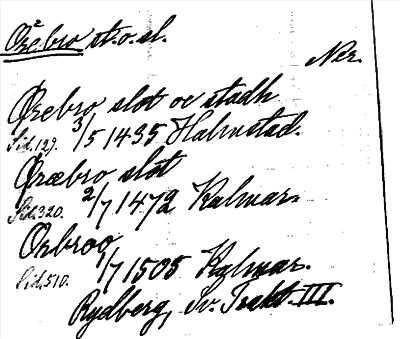 Örebro st. o. sl.
Ner.
Ørebro slot oc stadh
Sid. 129. 3/5 1435 Halmstad.
Ørœbro slot
Sid. 320. 2/7 1472 Kalmar.
Orbroo
Sid. 510. 1/7 1505 Kalmar.
Rydberg, Sv. Trakt. III.